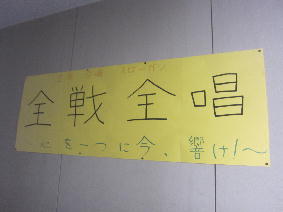 全戦全唱
〜心を一つに今、響け!〜